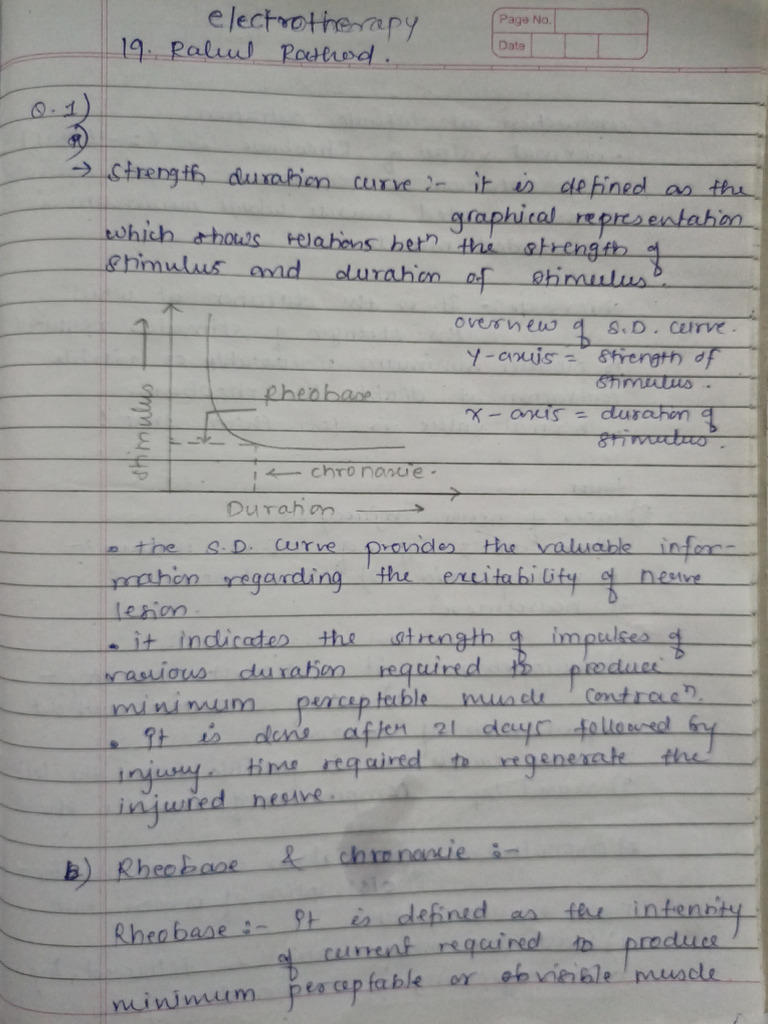 electrotherapy
Page No.
Date
19. Rahul Rathod.
Q.1)
A)
→ Strength duration curve :- it is defined as the
graphical representation
which shows relations betn the strength of
stimulus and duration of stimulus.
overview of S.D. curve.
y-axis = strength of
stimulus.
x-axis = duration of
stimulus.
stimulus
Rheobase
← chronaxie.
Duration →
• the S.D. curve provides the valuable infor-
mation regarding the excitability of nerve
lesion.
• it indicates the strength of impulses of
various duration required to produce
minimum perceptable muscle contracn.
• It is done after 21 days followed by
injury. time required to regenerate the
injured nerve.
B) Rheobase & chronaxie :-
Rheobase :- It is defined as the intenrity
of current required to produce
minimum perceptable or obvisible muscle